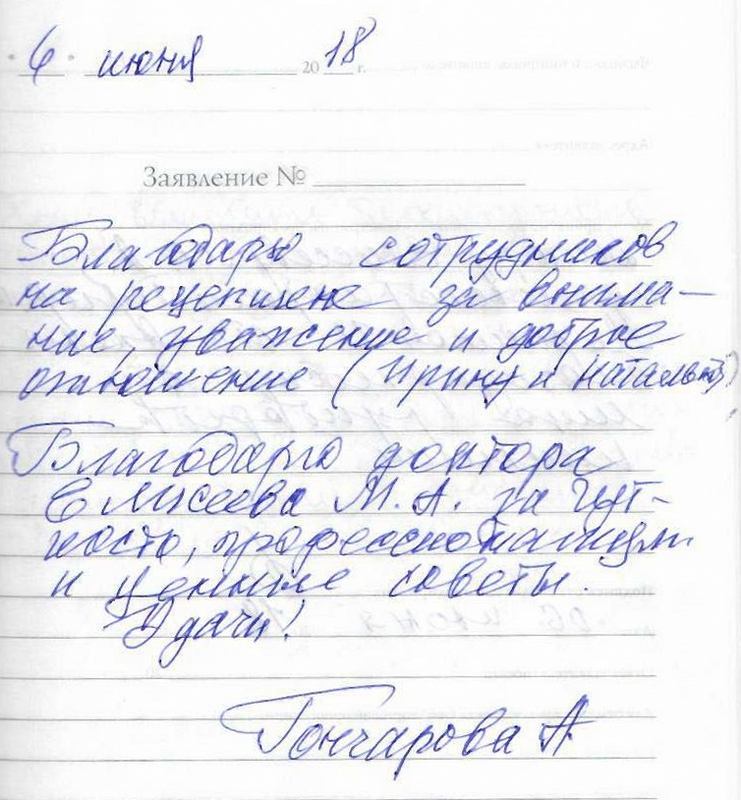 6 июня 2018 г.
Заявление №
Благодарю сотрудников
на рецепшене за внима-
ние, уважение и доброе
отношение (Ирину и Наталью)
Благодарю доктора
Елисеева М. А. за чут-
кость, профессионализм
и ценные советы.
Удачи!
Гончарова А